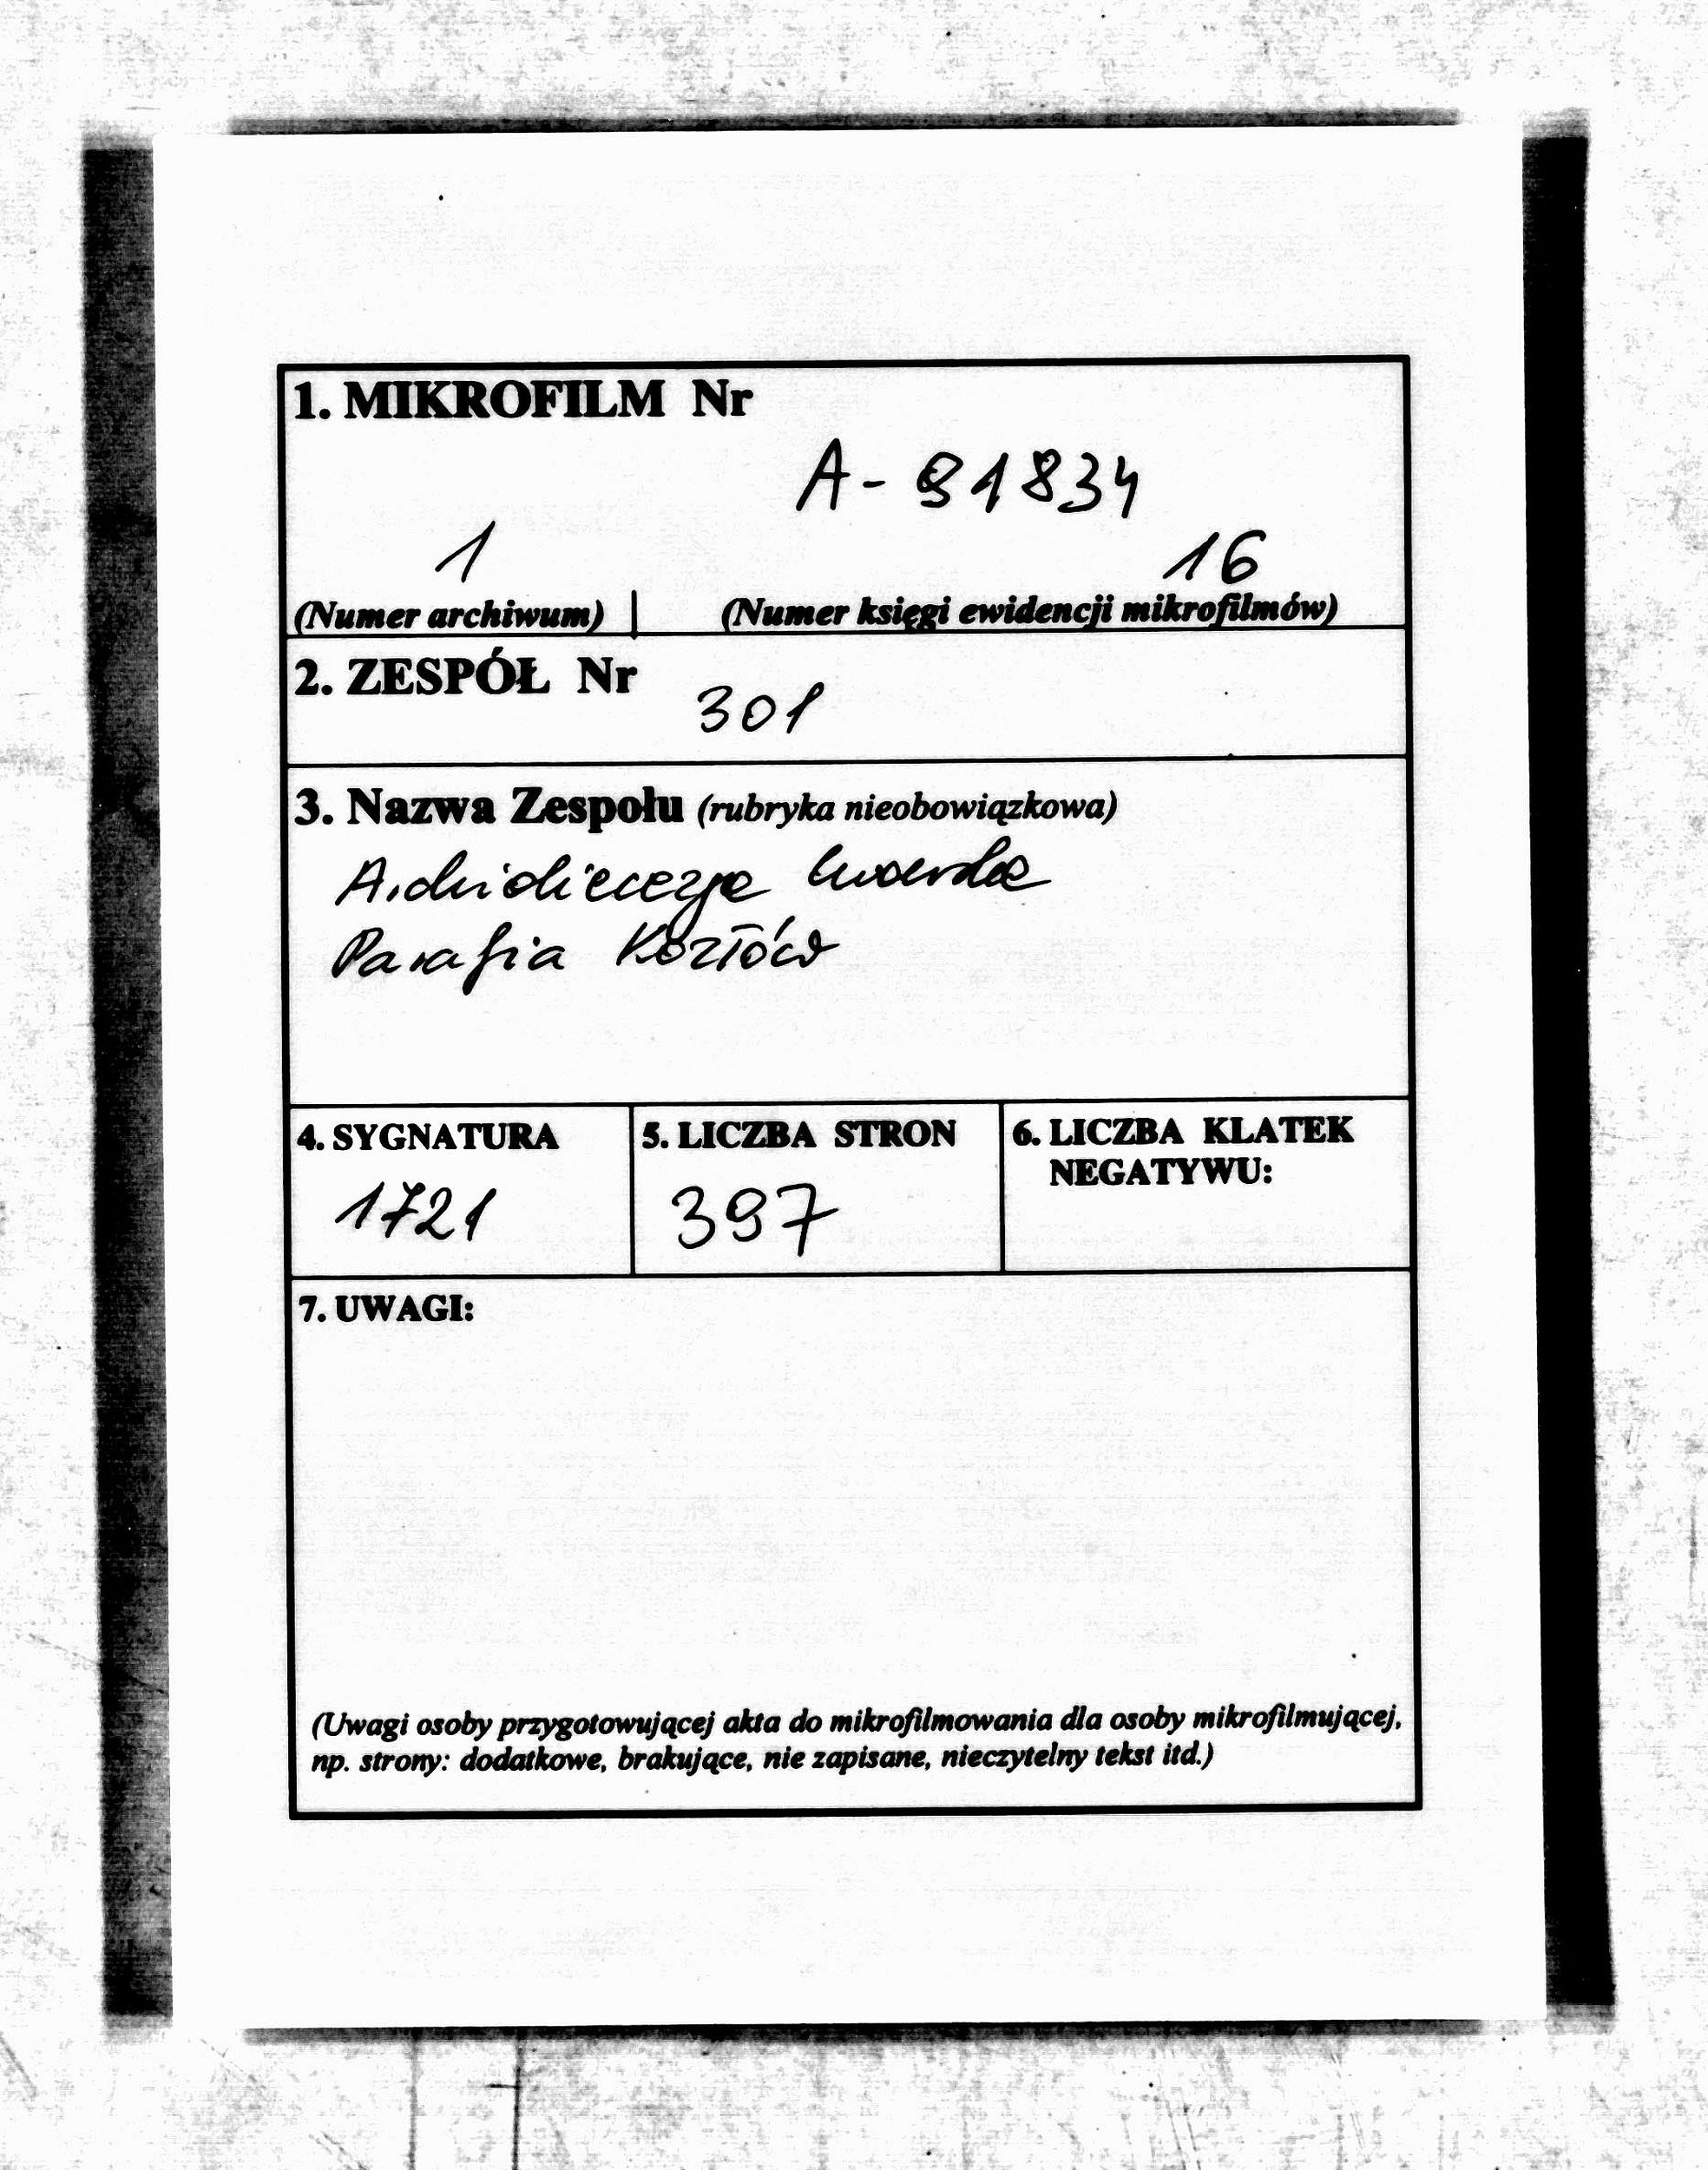 1. MIKROFILM Nr
A - 91834
1 16
(Numer archiwum) | (Numer księgi ewidencji mikrofilmów)
2. ZESPÓŁ Nr 301
3. Nazwa Zespołu (rubryka nieobowiązkowa)
Archidiecezja Lwowska
Parafia Kozłów
4. SYGNATURA
1721
5. LICZBA STRON
397
6. LICZBA KLATEK
NEGATYWU:
7. UWAGI:
(Uwagi osoby przygotowującej akta do mikrofilmowania dla osoby mikrofilmującej,
np. strony: dodatkowe, brakujące, nie zapisane, nieczytelny tekst itd.)